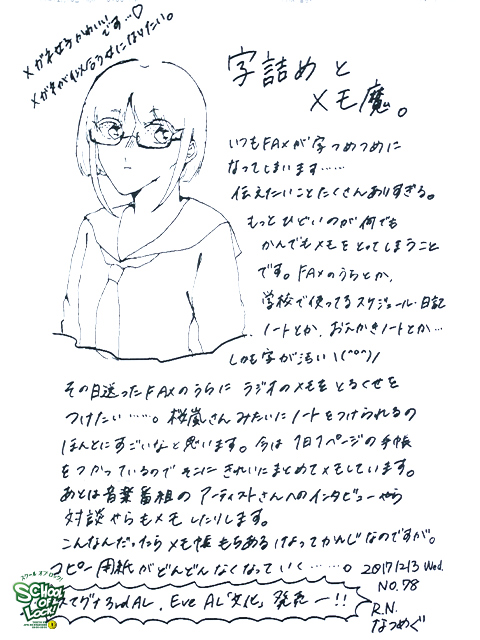 メガネ女子かわいい
です…♡
メガネがにあう女になりたい。
字詰めと
メモ魔。
いつもFAXが字つめつめに
なってしまいます……
伝えたいことたくさんありすぎる。
もっとひどいのが何でも
かんでもメモをとってしまうこと
です。FAXのうらとか、
学校で使ってるスケジュール・日記
ノートとか、おえかきノートとか…
しかも字が汚い\(^o^)/
その日送ったFAXのうらにラジオのメモをとるくせを
つけたい……。桜嵐さんみたいにノートをつけられるの
ほんとにすごいなと思います。今は1日1ページの手帳
をつかっているのでそこにきれいにまとめてメモしています。
あとは音楽番組のアーティストさんへのインタビューやら
対談やらもメモしたりします。
こんなんだったらメモ帳もちあるけよってかんじなのですが。
コピー用紙がどんどんなくなっていく……。
2017 12/13 Wed.
NO.78
R.N.
なつめぐ
3rd AL、Eve AL「文化」発売ー!!
スクール オブ ロック!
SCHOOL OF LOCK!